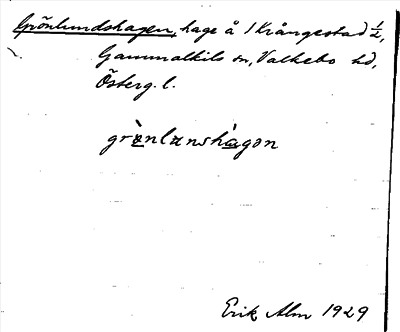 Grönlundshagen, hage å 1 Krångestad 1/2,
Gammalkils sn, Valkebo hd,
Österg. l.
grö̀nlunshágon
Erik Alm 1929